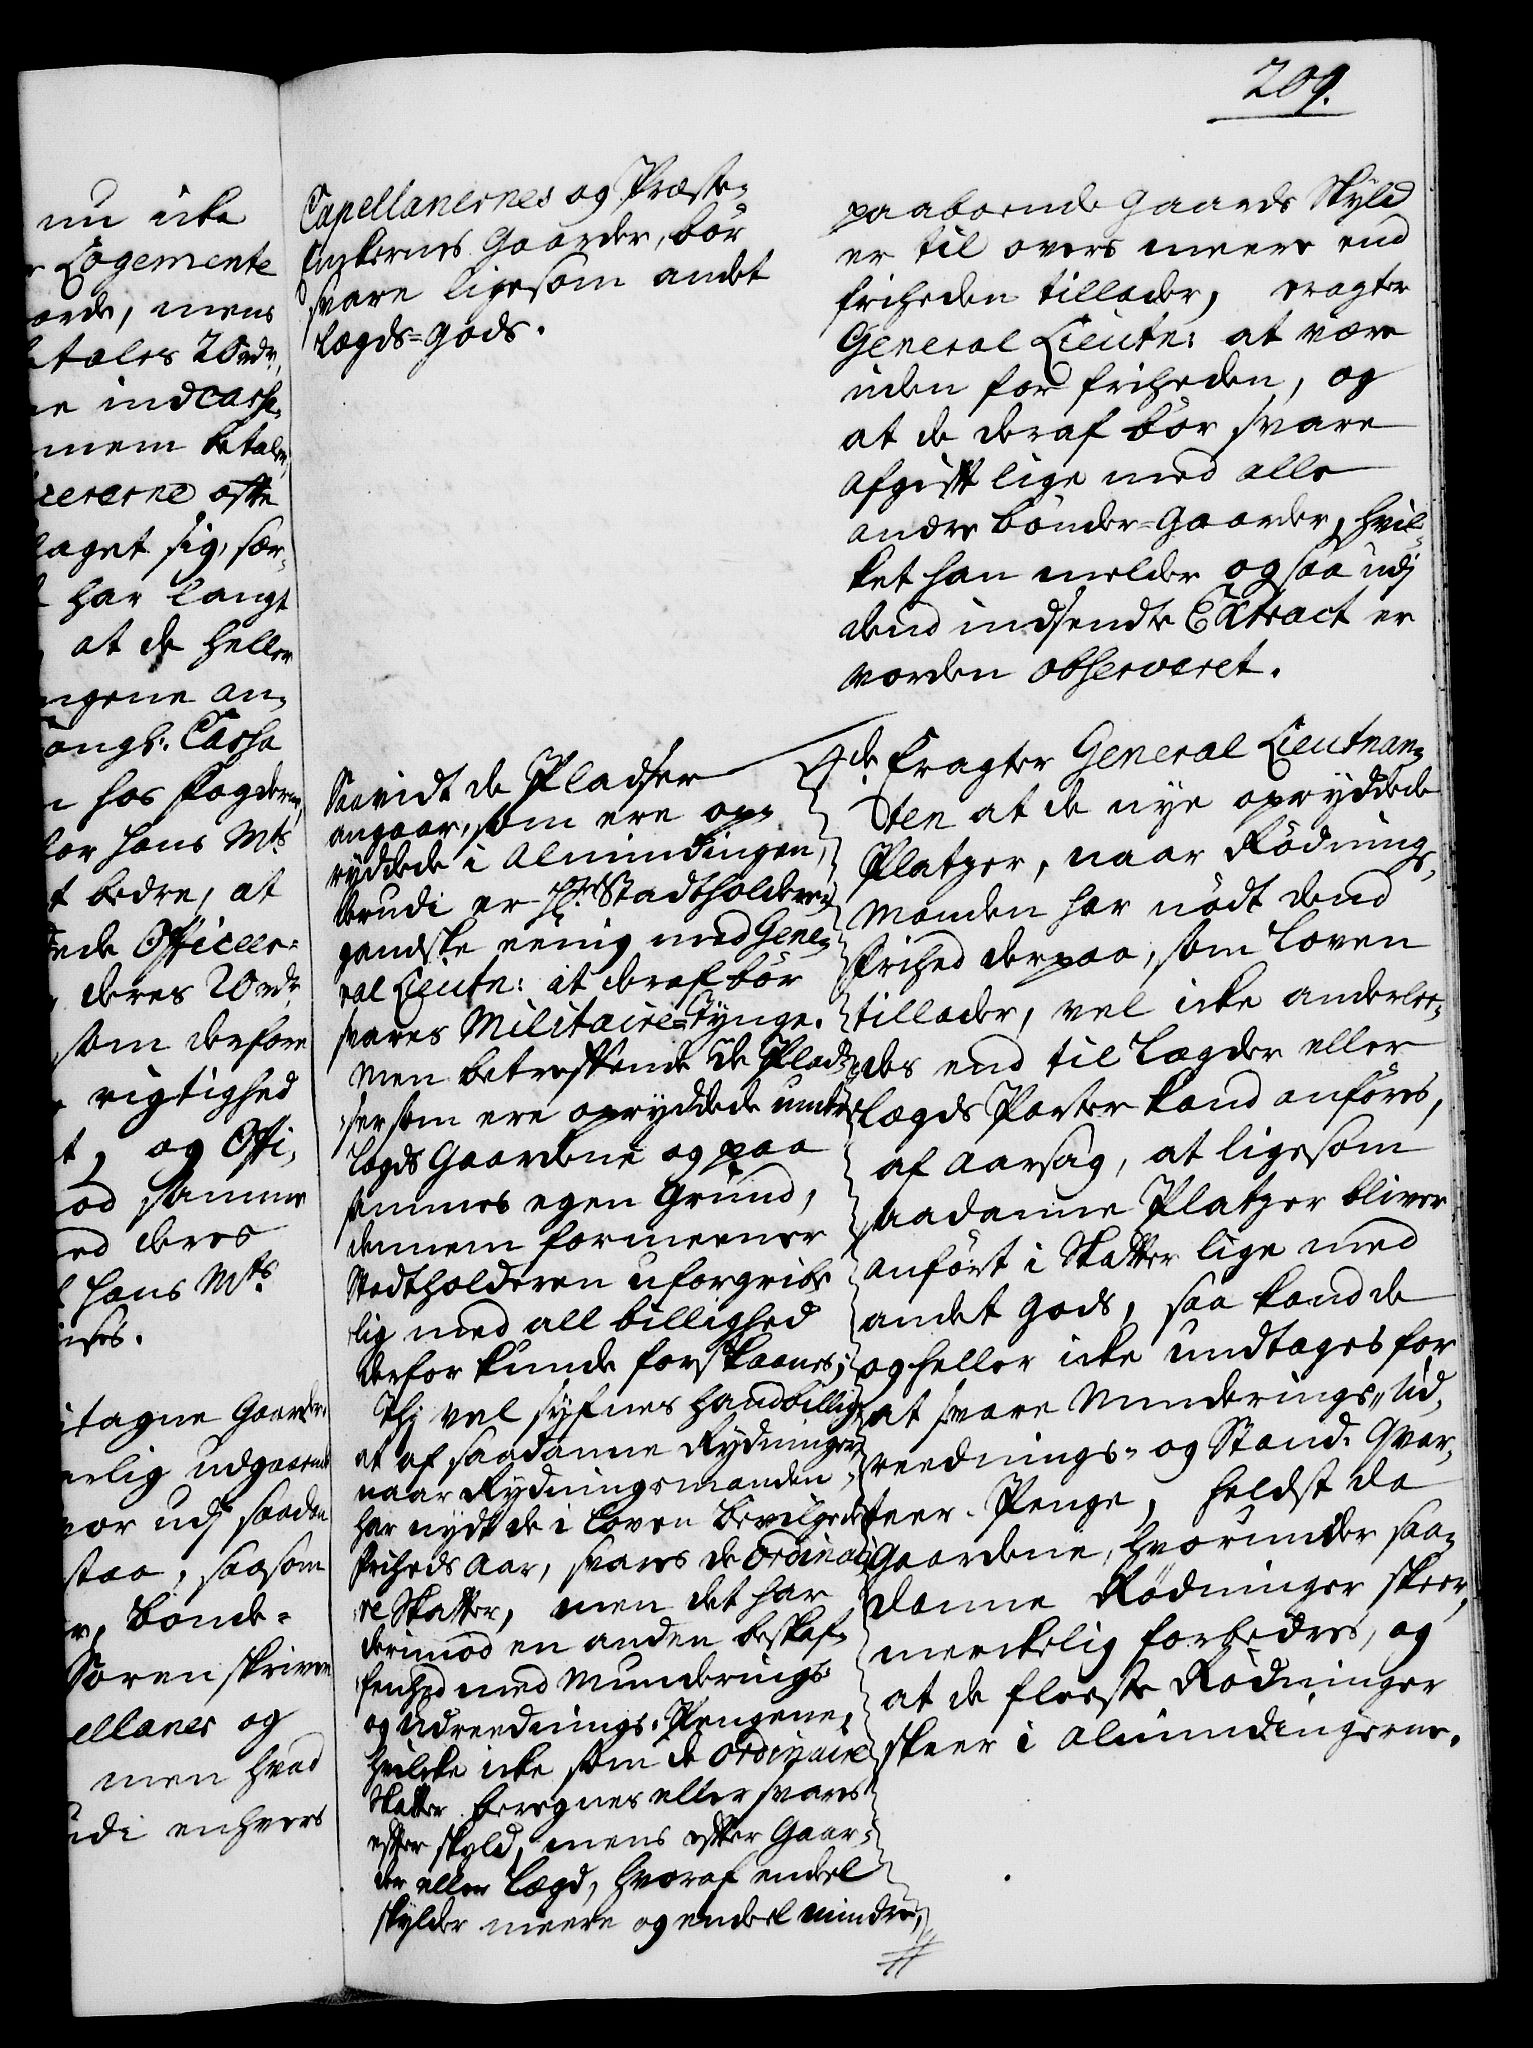 209.
nu icke
Logemente
orde, mens
tales 20 rdr.,
ne indcasse-
mem betaler,
cererne ofte
laget sig, sær-
har langt
at de heller
ngene an-
ongl: Cassa
hos fogderne,
for Hans Mts
t bedre, at
ede Officeer-
deres 20 rdr
som derfore
rigtighed
t, og Offi-
od samme
ed deres
Hans Mts
ises.
itagne Gaarder
erlig udgaaende
vor udj saadan
staa, saasom
r, Bonde-
Soren skriver
ellaner og
men hvad
udi enhvers
Capellanernes og Præste-
Enkernes Gaarder, bör
svare ligesom andet
Lægds-gods.
Saavidt de Pladser
angaar, som ere op-
ryddede i Almindingen,
derudi er Hr. Stadtholderen
gandske eenig med Gene-
ral Lieutn: at deraf bör
svares Militaire-Tynge.
Men betreffende de Plad-
ser som ere opryddede under
Lægds Gaardene og paa
sammes egen Grund,
dennem formeener
Stadtholderen uforgribe-
lig med all billighed
derfor kunde forskaanes;
Thj vel syfnes hand billigt
at af saadanne Rydninger
naar Rydningsmanden
har nydt de i Loven bevilgede
friheds Aar, svares de Ordinai-
re Skatter, men det har
derimod en anden beskaf-
fenhed med Munderings
og Udreednings-Pengene,
hvilcke icke som de Ordinaire
Skatter beregnes eller svares
efter skyld, mens efter Gaar-
der eller Lægd, hvoraf endeel
skylder meere og endeel mindre,
#
paaboende Gaards Skyld
er til overs meere end
friheden tillader, eragter
General Lieutn: at være
uden for friheden, og
at de deraf bör svare
Afgift lige med alle
andre bönder-Gaarder, hvil-
ket han melder ogsaa udj
dend indsendte Extract er
vorden observeret.
4de Eragter General Lieutnan-
ten at de nye opryddede
Platzer, naar Rödnings-
Manden har nödt dend
Frihed derpaa, som Loven
tillader, vel icke anderlee-
des end til Lægder eller
Lægds Parter kand anföres,
af Aarsag, at ligesom
saadanne Platzer bliver
anfört i Skatter lige med
andet Gods, saa kand de
og heller icke undtages for
at svare Munderings-, Ud-
reednings- og Stand-Qvar-
teer-Penge, heldst da
Gaardene, hvorunder saa-
danne Rödninger skeer,
merckelig forbedres, og
at de fleeste Rödninger
skeer i Alimindingerne.